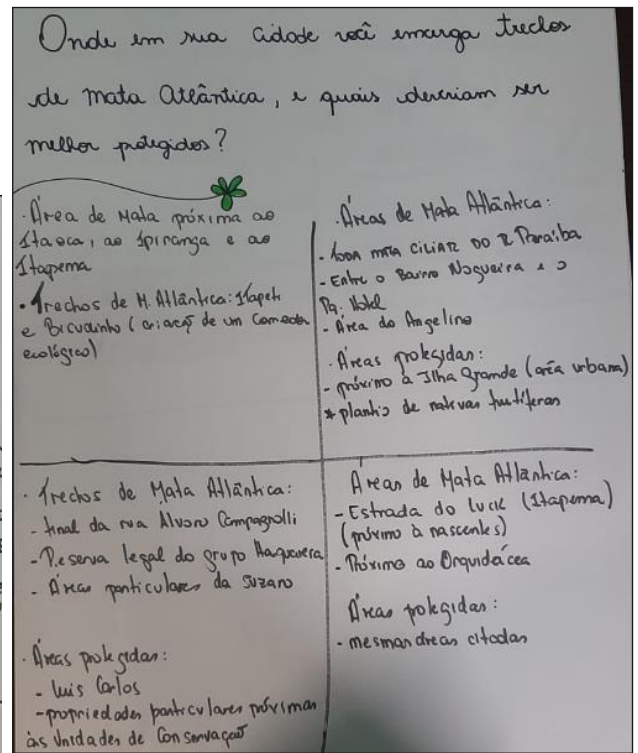 Onde em sua cidade você enxerga trechos
de mata Atlântica, e quais deveriam ser
melhor protegidos?
· Área de Mata próxima ao
Itaoca, ao Ipiranga e ao
Itapema
· Trechos de M. Atlântica: Itapeti
e Bicudinho (criação de um
ecológico)
· Áreas de Mata Atlântica:
- mata CILIAR DO R Paraíba
- Entre o Bairro Nogueira e o
Pq.
- Área do Angelino
· Áreas protegidas:
- próximo à Ilha Grande (área urbana)
* plantio de nativas frutíferas
· Trechos de Mata Atlântica:
- final da rua Alvaro Campagnolli
- Reserva legal do grupo
- Áreas particulares da Suzano
· Áreas protegidas:
- Luis Carlos
- propriedades particulares próximas
às Unidades de Conservação
Áreas de Mata Atlântica:
- Estrada do (Itapema)
(próximo à nascentes)
- Próximo ao Orquidácea
Áreas protegidas:
- mesmas áreas citadas